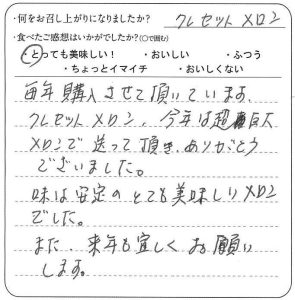 ・何をお召し上がりになりましたか？ クレセットメロン
・食べたご感想はいかがでしたか？(〇で囲む)
・とっても美味しい！ ・おいしい ・ふつう
・ちょっとイマイチ ・おいしくない
毎年購入させて頂いています。
クレセットメロン、今年は超巨大
メロンで送って頂き、ありがとう
ございました。
味は安定のとても美味しいメロン
でした。
また、来年も宜しくお願い
します。